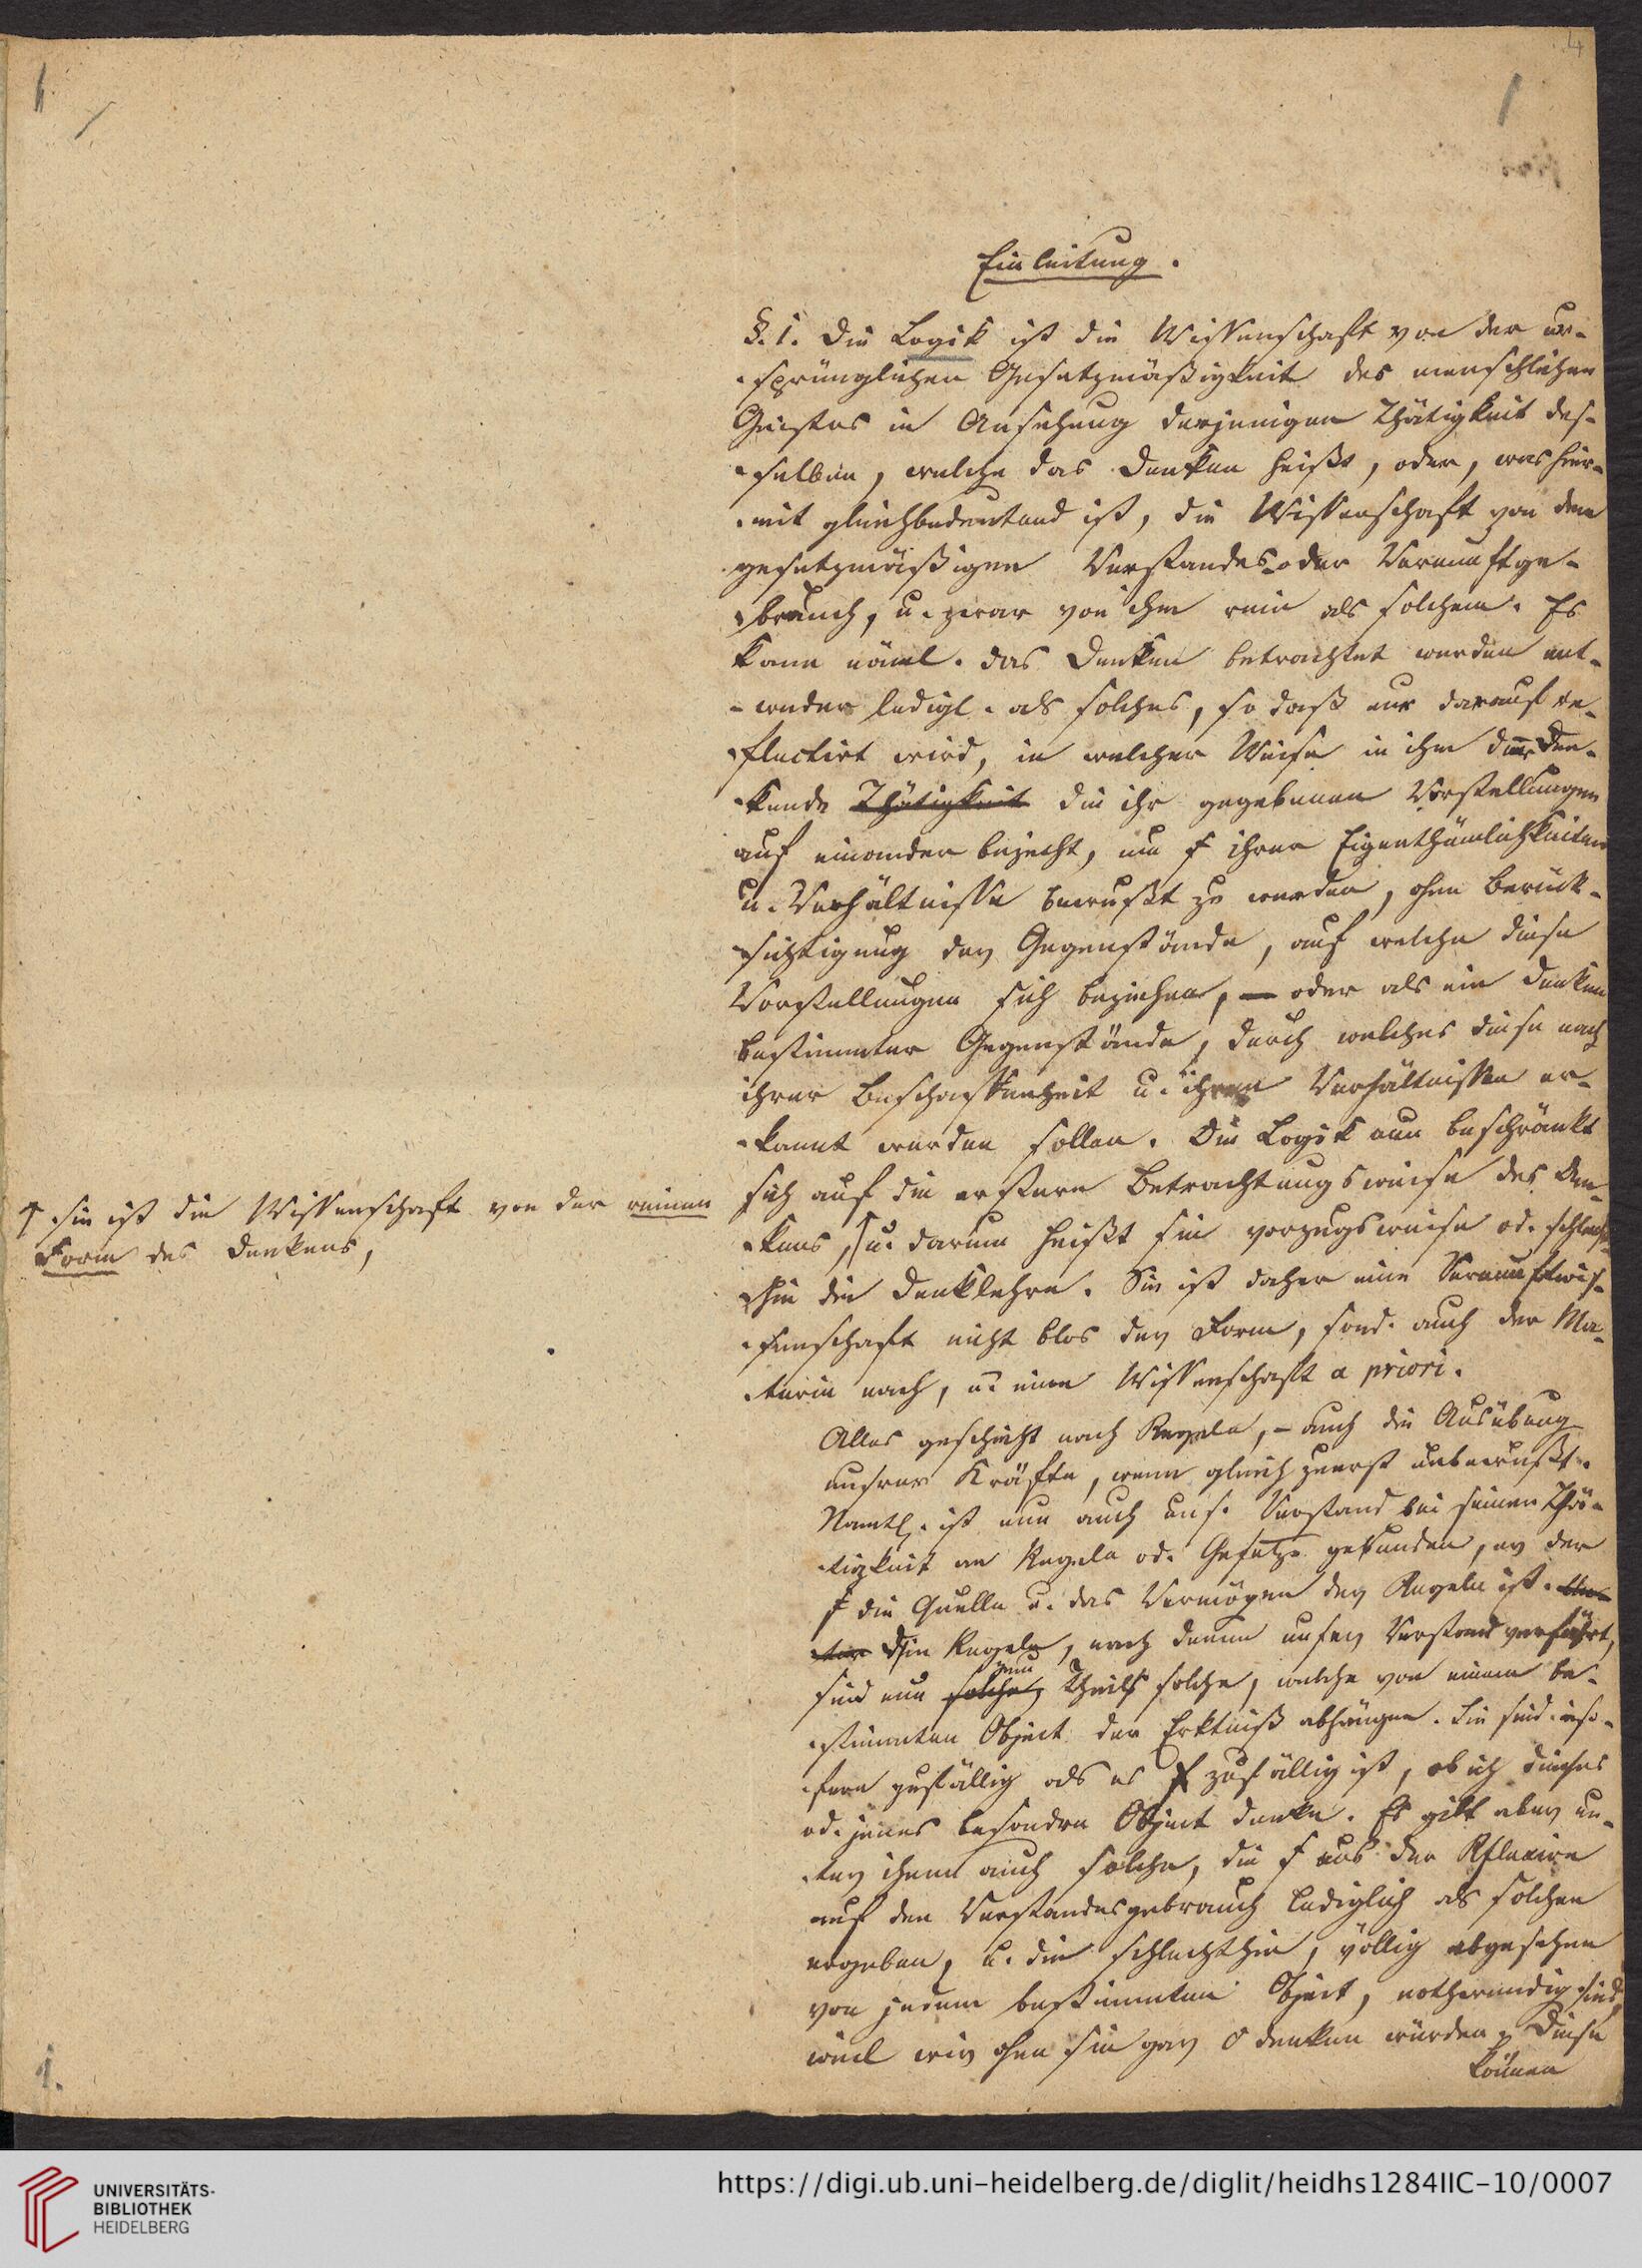 4
1
1
Einleitung.
§. 1. Die Logik ist die Wissenschaft von der ur-
sprünglichen Gesetzmäßigkeit des menschlichen
Geistes in Ansehung derjenigen Thätigkeit des-
selben, welche das Denken heißt, oder, was hier-
mit gleichbedeutend ist, die Wissenschaft von dem
gesetzmäßigen Verstandes- oder Vernunftge-
brauch, u. zwar von ihm rein als solchem. Es
kann näml. das Denken betrachtet werden ent-
weder ledigl. als solches, so daß nur darauf re-
flectirt wird, in welcher Weise in ihm der Den-
kende Thätigkeit die ihr gegebenen Vorstellungen
auf einander bezieht, um ihrer Eigenthümlichkeiten
u. Verhältnisse bewußt zu werden, ohne Berück-
sichtigung der Gegenstände, auf welche diese
Vorstellungen sich beziehen, — oder als ein Denken
bestimmter Gegenstände, durch welches diese nach
ihrer Beschaffenheit u. ihren Verhältnissen er-
kannt werden sollen. Die Logik nun beschränkt
sich auf die erstere Betrachtungsweise des Den-
kens, u. darum heißt sie vorzugsweise od. schlecht-
hin die Denklehre. Sie ist daher eine Vernunftwis-
senschaft nicht blos der Form, sond. auch der Ma-
terie nach, u. eine Wissenschaft a priori.
sie ist die Wissenschaft von der reinen
Form des Denkens,
Alles geschieht nach Regeln, - auch die Ausübung
unsrer Kräfte, wenn gleich zuerst unbewußt.
Namtl. ist nun auch uns. Verstand bei seiner Thä-
tigkeit an Regeln od. Gesetze gebunden, er der
die Quelle u. das Vermögen der Regeln ist. Un-
ter Die Regeln, nach denen unser Verstand verfährt,
sind nun solche, Theils solche, welche von einem be-
stimmten Object der Erktniß abhängen. Sie sind inso-
fern zufällig als es zufällig ist, ob ich dieses
od. jenes besondre Object denke. Es gibt aber un-
ter ihnen auch solche, die aus der Reflexion
auf den Verstandesgebrauch lediglich als solchen
ergeben, u. die schlechthin, völlig abgesehen
von jedem bestimmten Object, nothwendig sind,
weil wir ohne sie gar 0 denken würden. Diese
können
1.
UNIVERSITÄTS-
BIBLIOTHEK
HEIDELBERG
https://digi.ub.uni-heidelberg.de/diglit/heidhs1284IIC-10/0007